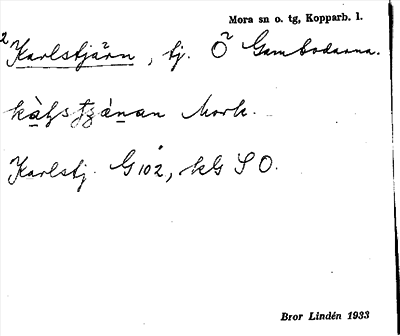 Mora sn o. tg, Kopparb. l.
2 Karlstjärn, tj. Ö Gambodarna.
Mork.
Karlstj. G 102, kG SO.
Bror Lindén 1933